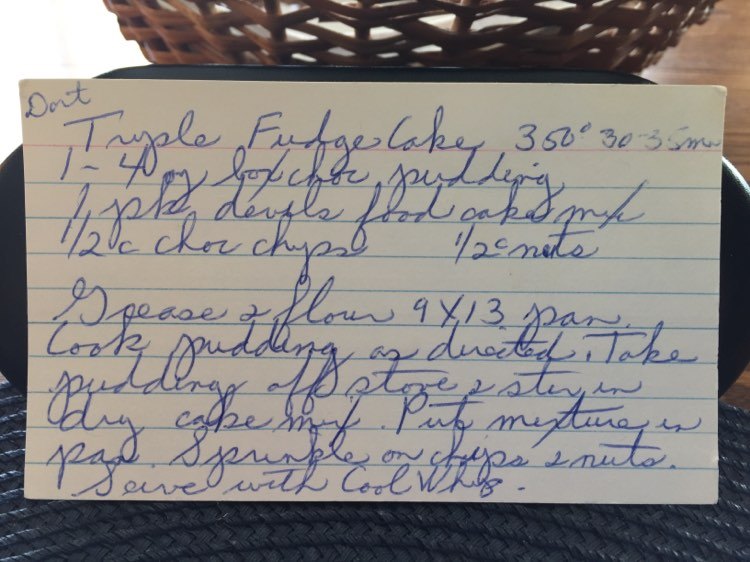 Dort
Triple Fudge Cake 350° 30-35min
1 - 40z box choc pudding
1 pk devils food cake mix
1/2 c choc chips 1/2 c nuts
Grease & flour 9X13 pan.
Cook pudding as directed. Take
pudding off stove & stir in
dry cake mix. Put mixture in
pan. Sprinkle on chips & nuts.
Serve with Cool Whip.